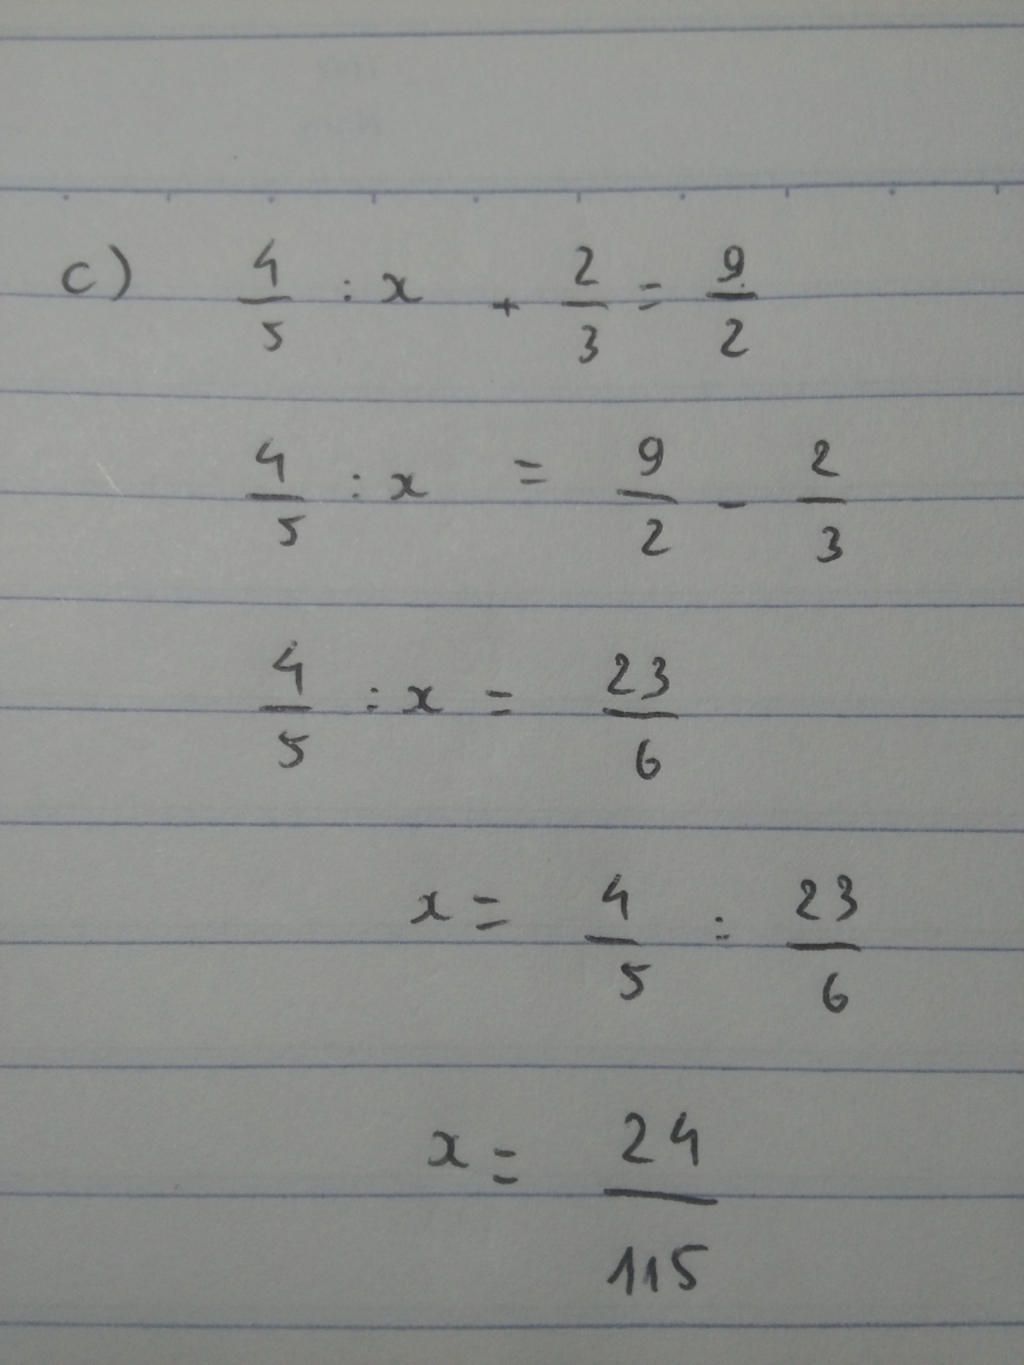 c) 4/5 : x + 2/3 = 9/2
4/5 : x = 9/2 - 2/3
4/5 : x = 23/6
x = 4/5 : 23/6
x = 24/115